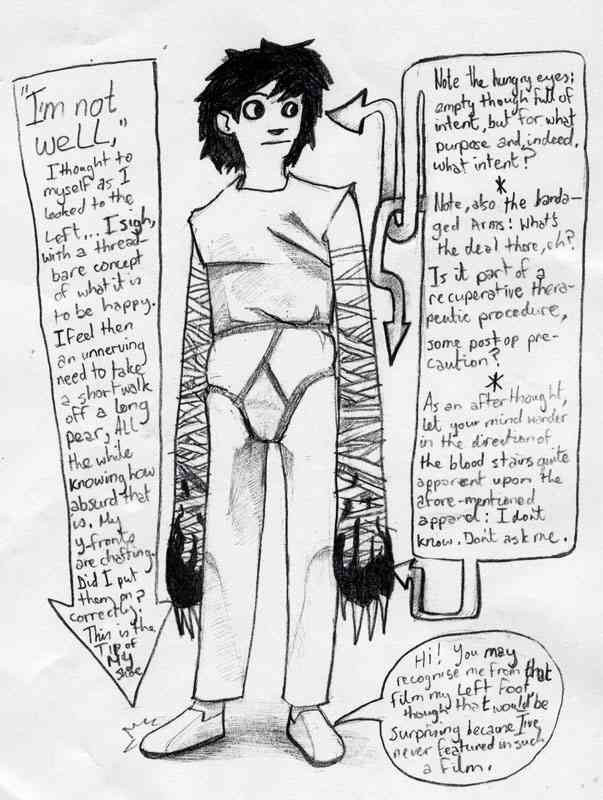 "I'm not
well,"
I thought to
myself as I
looked to the
left... I sigh,
with a thread-
bare concept
of what it is
to be happy.
I feel then
an unnerving
need to take
a short walk
off a long
pear, All
the while
knowing how
absurd that
is. My
y-fronts
are chaffing.
Did I put
them on
correctly?
This is the
Tip of
My
shoe
Note the hungry eyes;
empty though full of
intent, but for what
purpose and, indeed,
what intent?
*
Note, also the banda-
ged Arms: What's
the deal there, eh?
Is it part of a
recuperative thera-
peutic procedure,
some post op pre-
caution?
*
As an after thought,
let your mind wander
in the direction of
the blood stains quite
apparent upon the
afore-mentioned
apparel: I don't
know. Don't ask me.
Hi! You may
recognise me from that
film my Left Foot
though that would be
surprising because I've
never featured in such
a film.